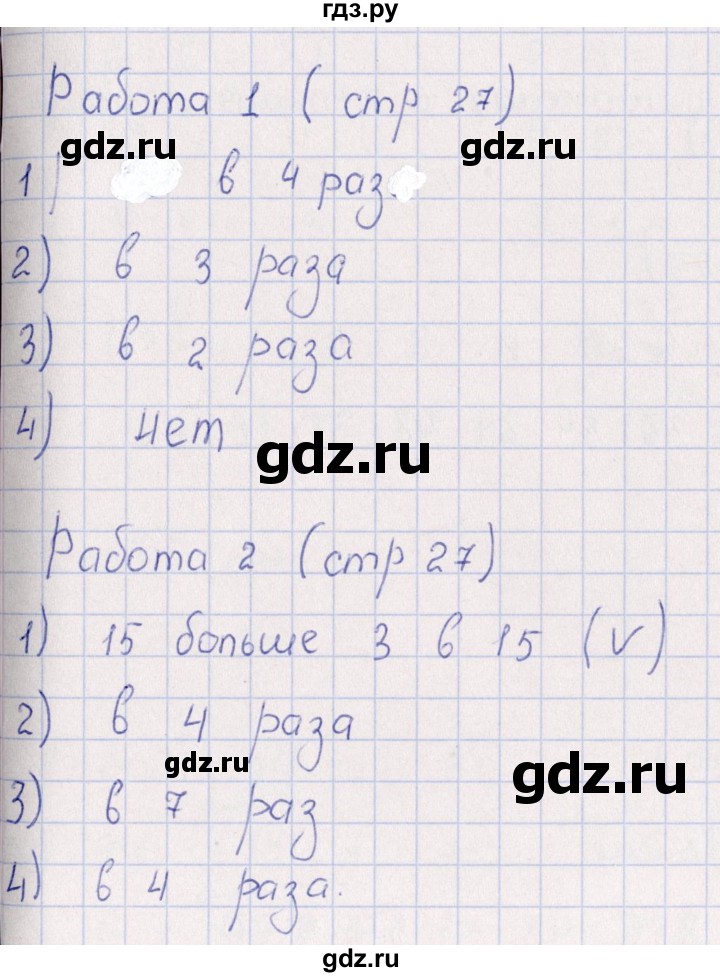 гдз.ру
Работа 1 ( стр 27)
gdz.ru gdz.ru
1) в 4 раз
2) в 3 раза
3) в 2 раза
4) нет
gdz.ru
Работа 2 (стр 27)
1) 15 больше 3 в 15 (v)
2) в 4 раза
gdz.ru
gdz.ru
3) в 7 раз
4) в 4 раза.
gdz.ru